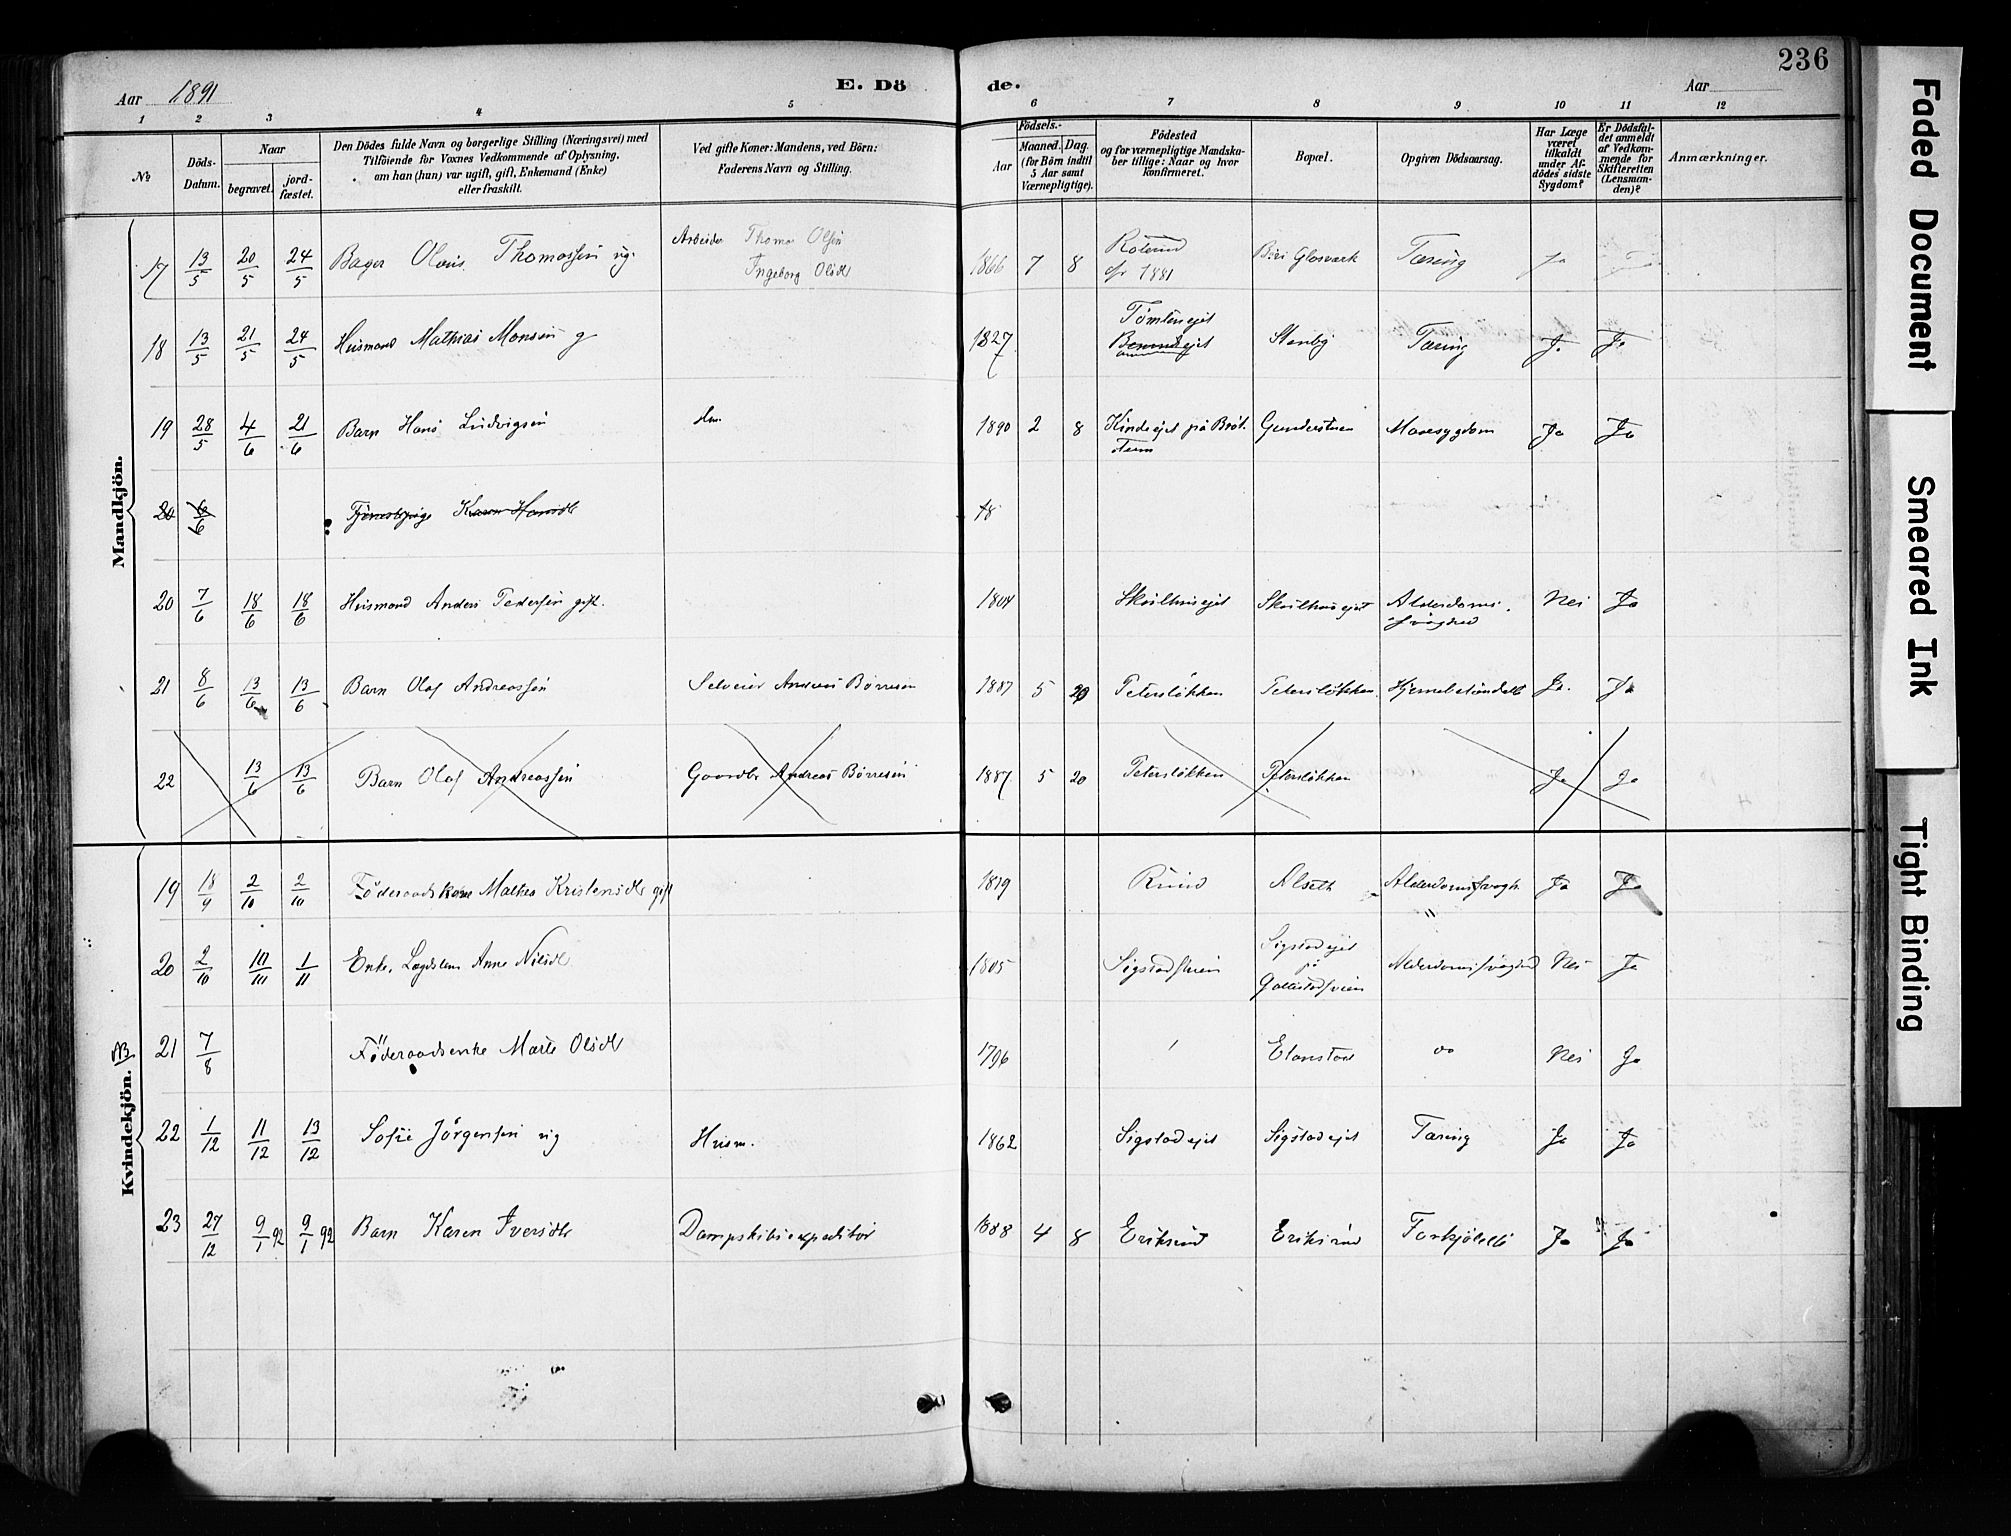 236
Aar 1891
E. Dö
de.
Aar
1 2 3 4 5 6 7 8 9 10 11 12
№
Döds-Datum.
Naar
begravet.
jord-fæstet.
Den Dödes fulde Navn og borgerlige Stilling (Næringsvei) med
Tilföiende for Voxnes Vedkommende af Oplysning,
om han (hun) var ugift, gift, Enkemand (Enke)
eller fraskilt.
Ved gifte Koner: Mandens, ved Börn:
Faderens Navn og Stilling.
Födsels-
Aar
Maaned. Dag.
(for Börn indtil
5 Aar samt
Værnepligtige).
Födested
og for værnepligtige Mandska-
ber tillige: Naar og hvor
konfirmeret.
Bopæl.
Opgiven Dödsaarsag.
Har Læge
været
tilkaldt
under Af-
dödes sidste
Sygdom?
Er Dödsfal-
det anmeldt
af Vedkom-
mende for
Skifteretten
(Lensman-
den)?
Anmærkninger.
Mandkjön.
17 13/5 20/5 24/5 Bager Olaus Thomassen ug. Arbeider Thomas Olsen
Ingeborg Olsdt 1866 7 8 Roterud 1881 Biri Glasværk Tæring Ja
18 13/5 21/5 24/5 Husmand Mathias Monsen g 1827 Stenby Tæring Ja Ja
19 28/5 4/6 21/6 Barn Hans Ludvigsen 1890 2 8 Mavesygdom Ja Ja
20 6/6 Tjenestepige Karen Hansdt 18
20 7/6 18/6 18/6 Husmand Anders Pedersen gift. 1804 Skulhusejet Skulhusejet Alderdoms-
svaghed Nei Ja
21 8/6 13/6 13/6 Barn Olaf Andreassen Selveier Andreas Børresen 1887 5 20 Petersløkken Petersløkken Hjernebetændelse Ja. Ja
22 13/6 13/6 Barn Olaf Andreassen Gaardbr Andreas Børresen 1887 5 20 Petersløkken Petersløkken Ja Ja
Kvindekjön.
19 18/9 2/10 2/10 Föderaadskone Mathea Kristensdt gift 1819 Ruud Alseth Alderdomssvagh. Ja Ja
20 2/10 10/10 1/11 Enke, Lægdslem Anne Nilsdt 1805 Sigstadsveen Sigstadejet
på
Alderdomssvaghed Nei Ja
NB 21 7/8 Föderaadsenke Marte Olsdt 1796 Nei Ja
22 1/12 11/12 13/12 Sofie Jörgensen ug Husm. 1862 Sigstadejet Sigstadejet Tæring Ja Ja
23 27/12 9/1 92 9/1 92 Barn Karen Iversdt Dampskibsexpeditør 1888 4 8 Eriksrud Eriksrud Forkjølelse Ja Ja
Faded Document
Smeared Ink
Tight Binding